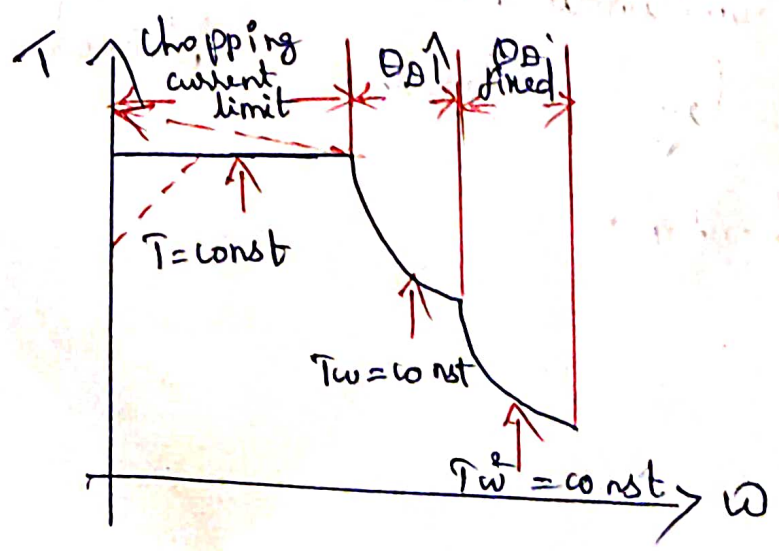 T
chopping
current
limit
θD↑
θD
fixed
T=const
Tω=const
Tω²=const
ω